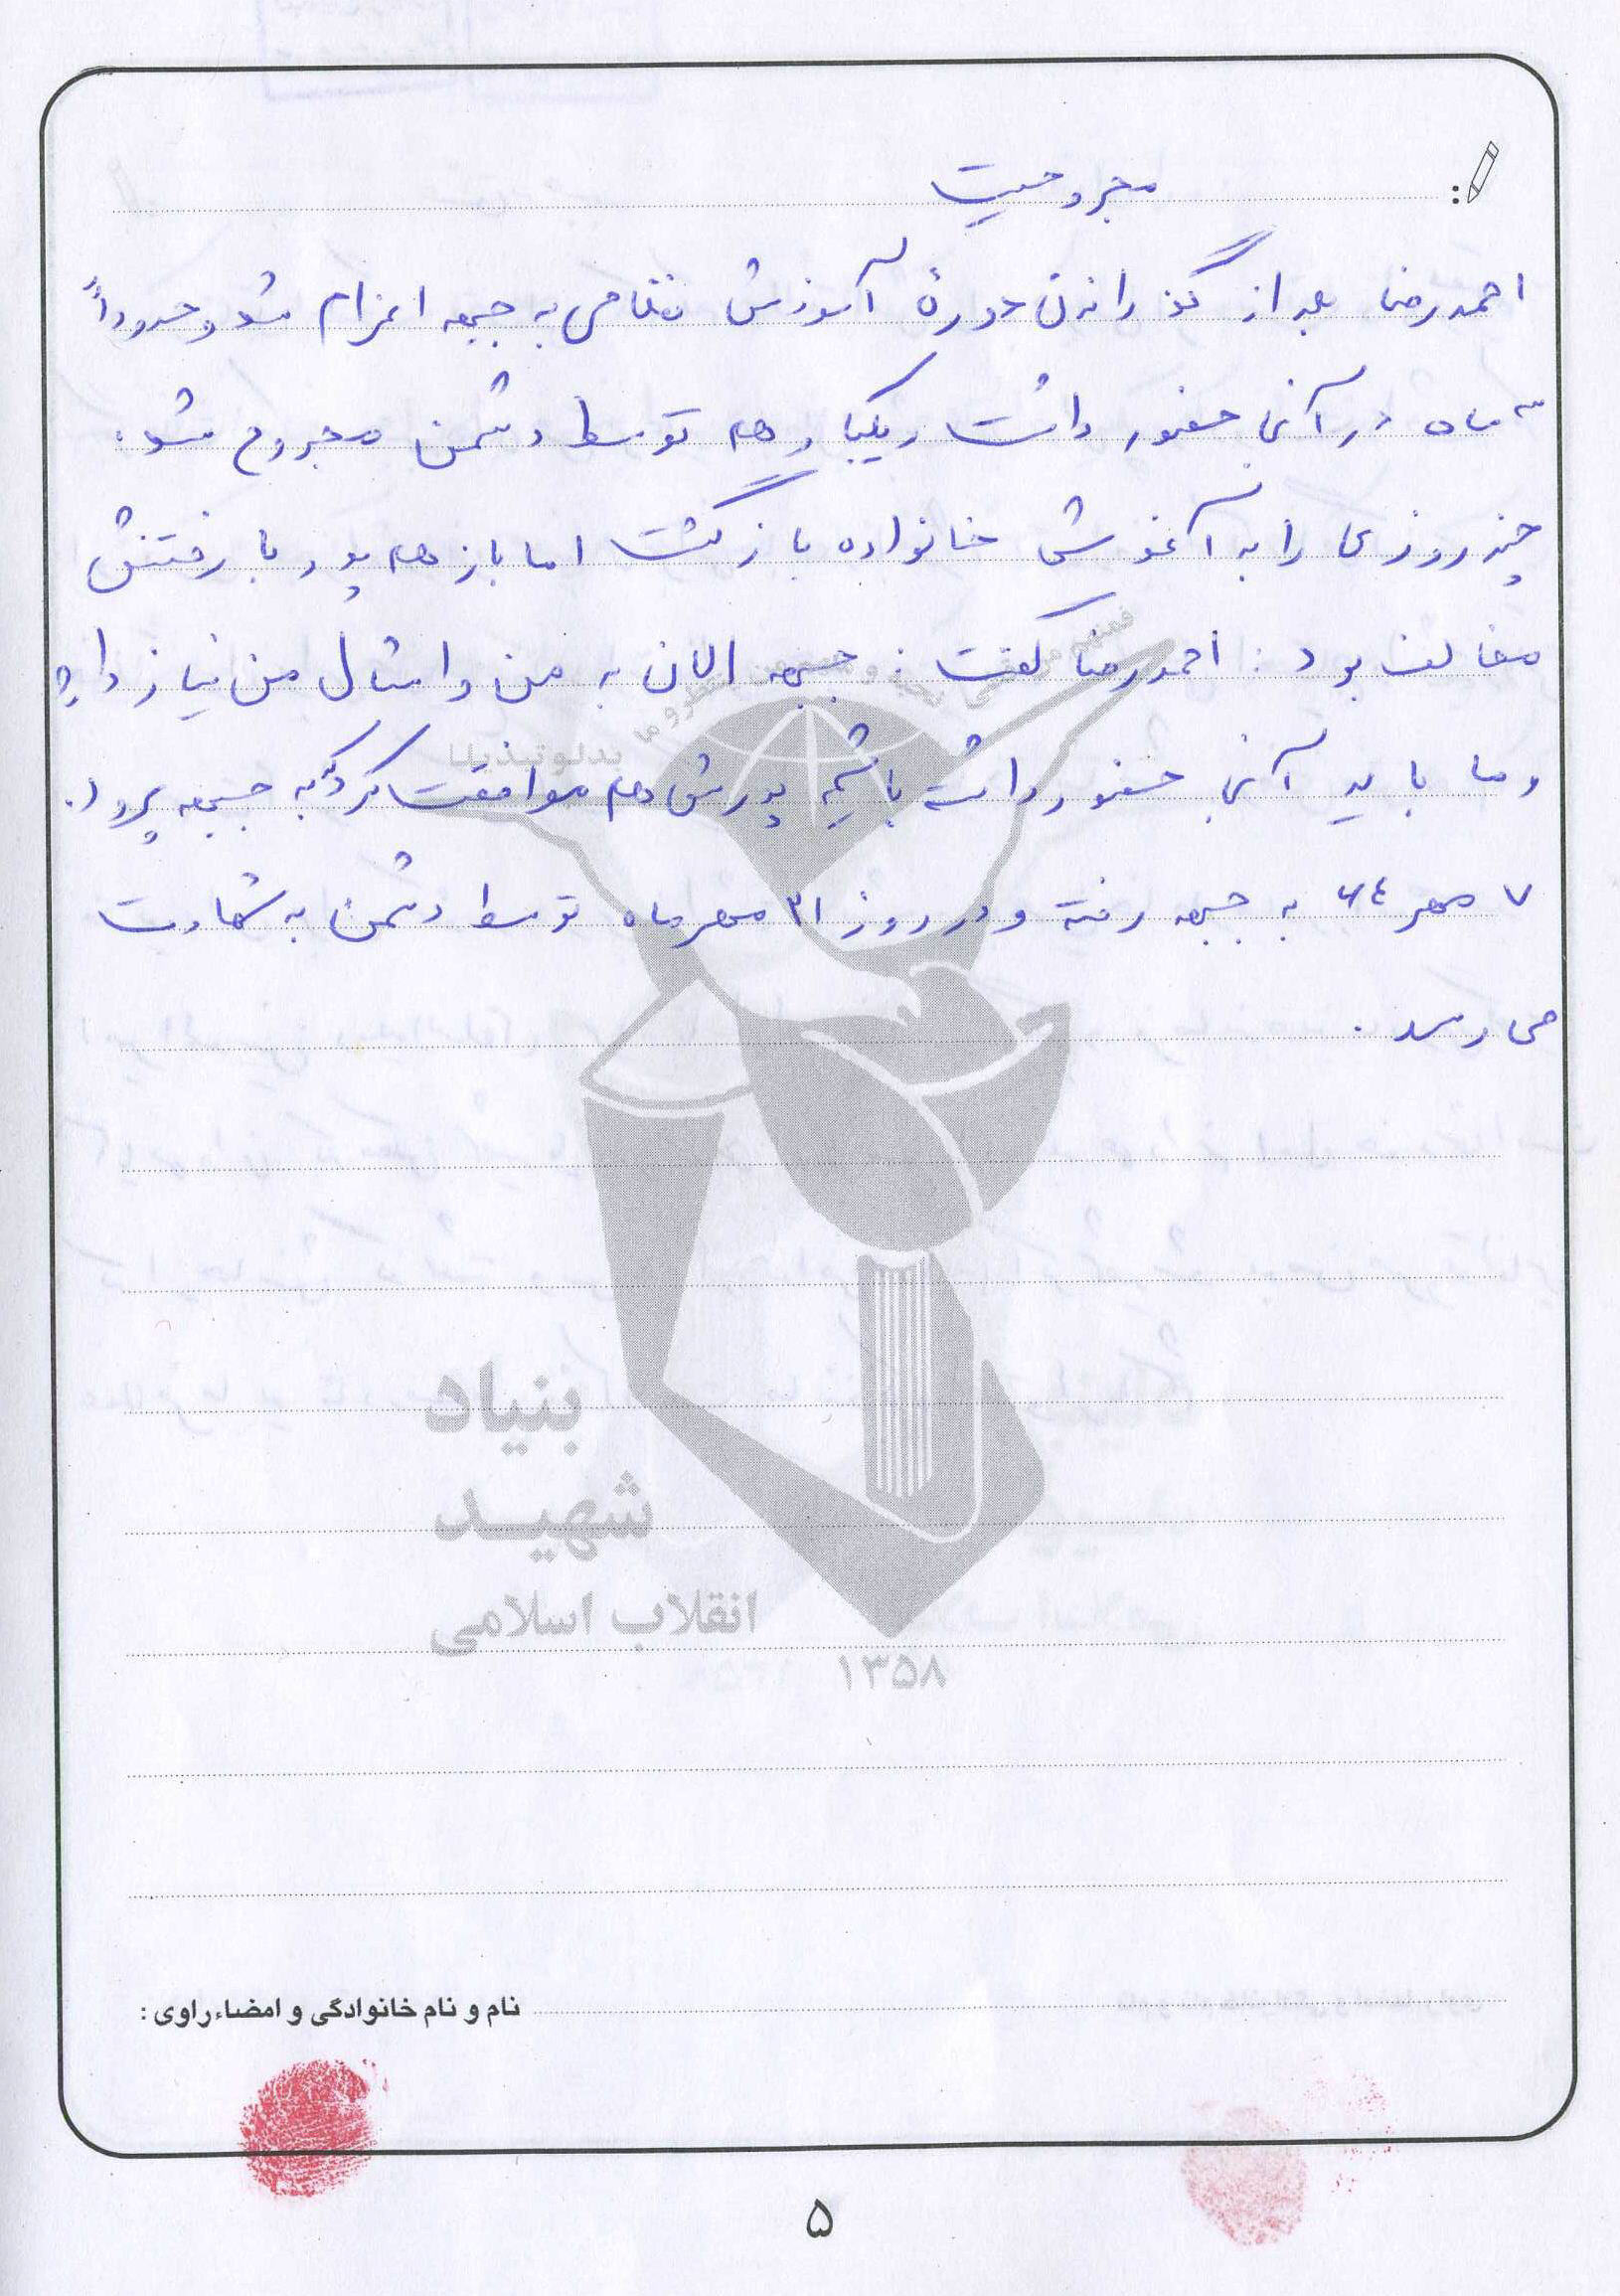 مجروحیت
احمدرضا بعد از گذراندن دورهٔ آموزش نظامی به جبهه اعزام شد و حدوداً
۳ ماه در آنجا حضور داشت و یکبار هم توسط دشمن مجروح شد.
چند روزی را به آغوش خانواده بازگشت اما باز هم پدر با رفتنش
مخالف بود : احمدرضا گفت : جبهه الان به من و امثال من نیاز دارد
و ما باید آنجا حضور داشته باشیم پدرش هم موافقت کرد که به جبهه برود.
۷ مهر ۶۴ به جبهه رفته و در روز ۳۱ مهرماه توسط دشمن به شهادت
می رسد .
بنیاد
شهید
انقلاب اسلامی
۱۳۵۸
نام و نام خانوادگی و امضاء راوی :
۵